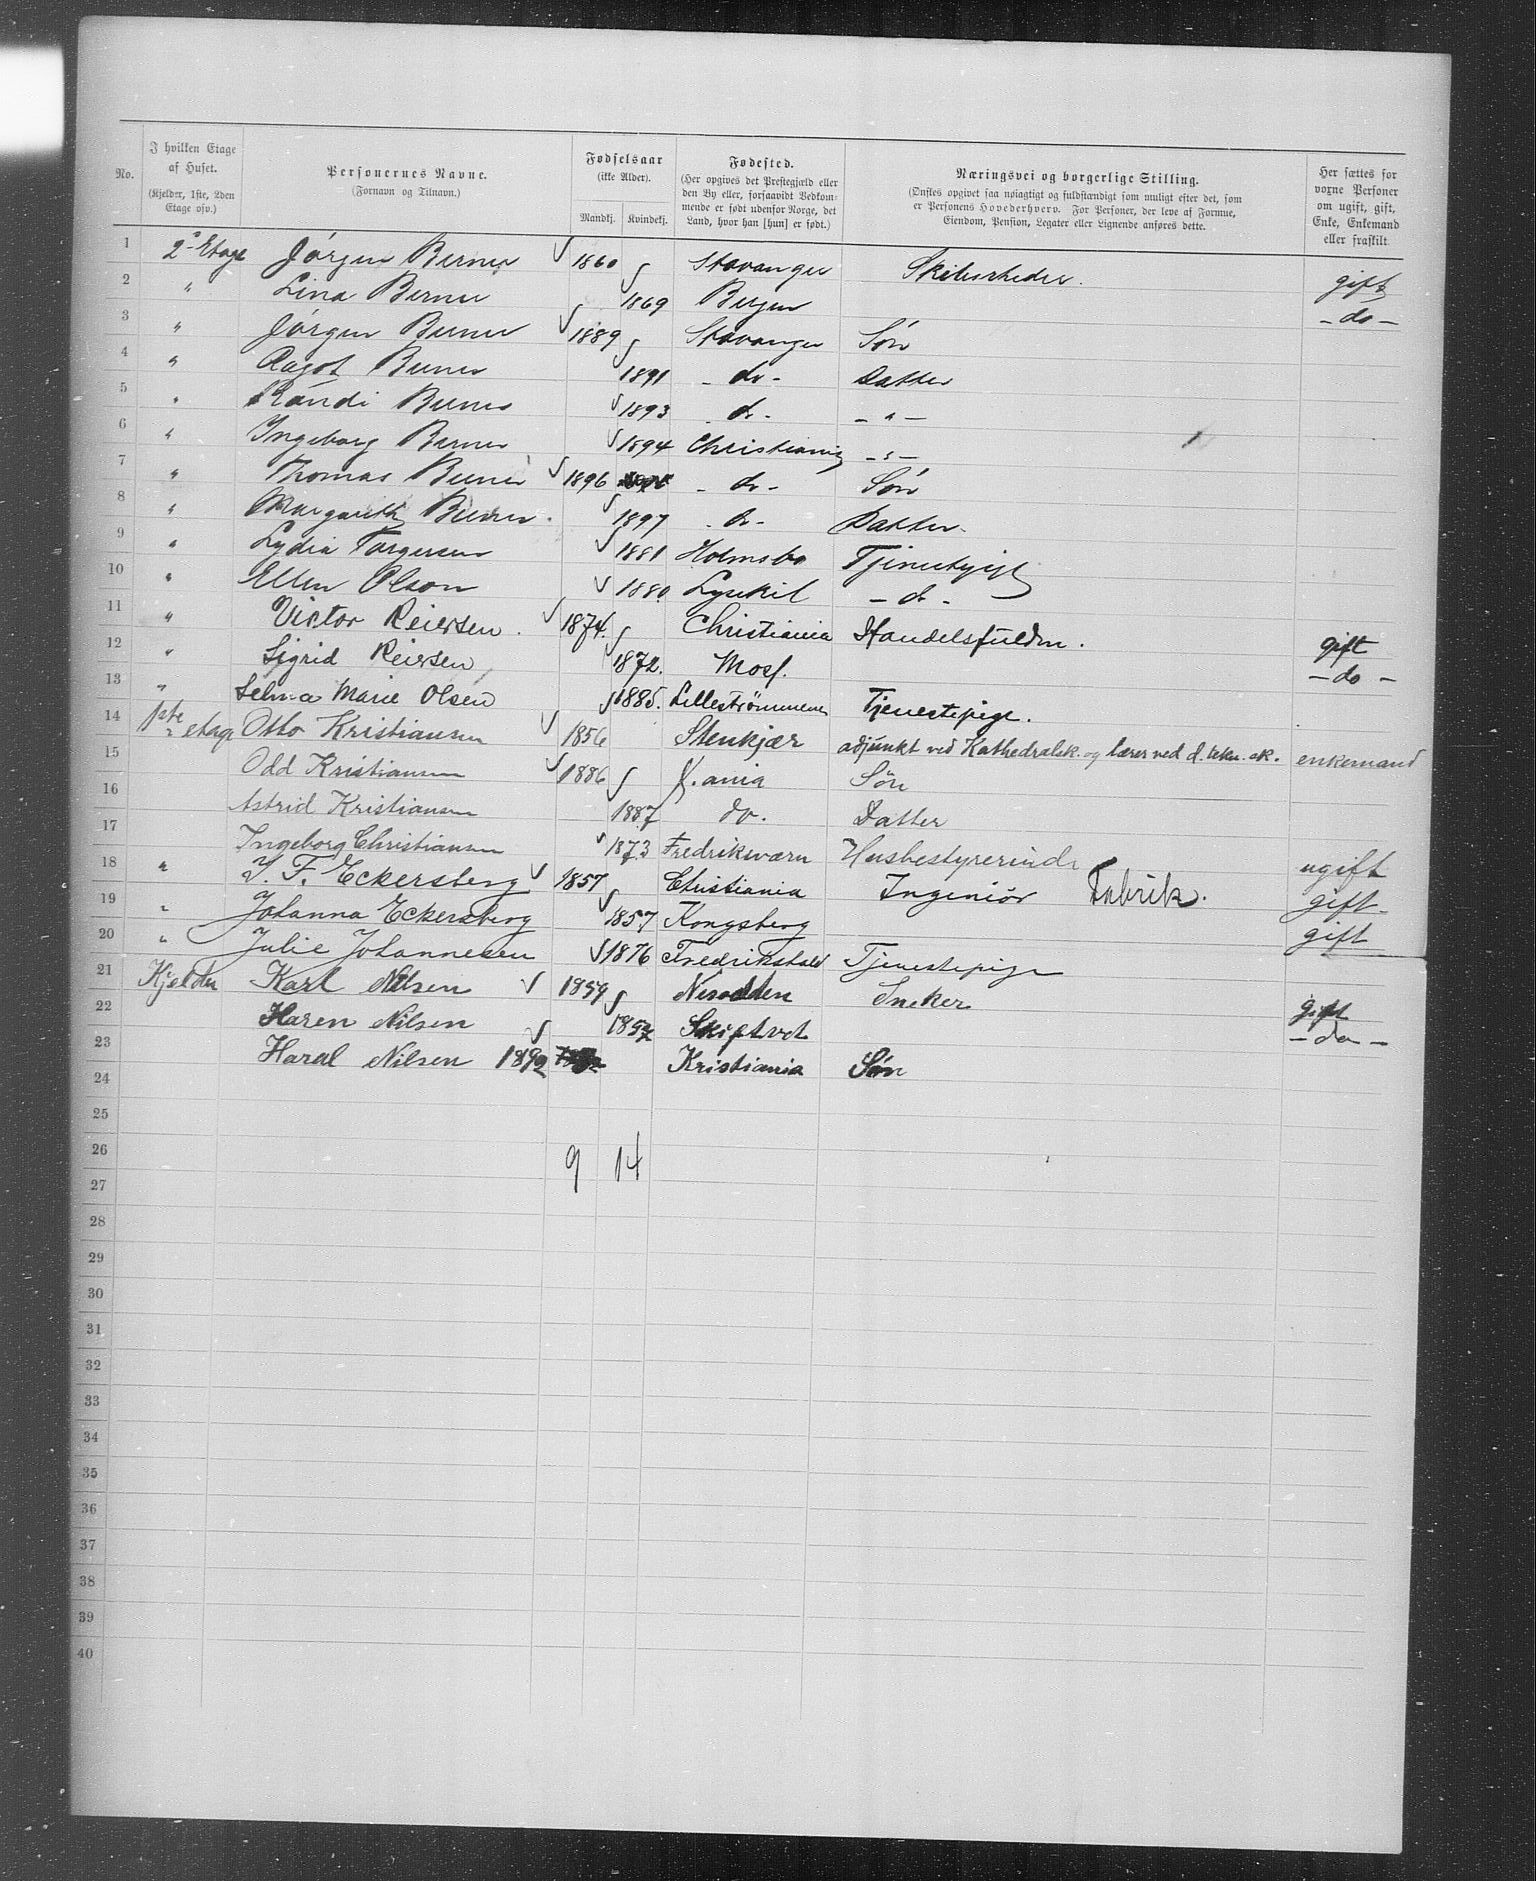 No.
I hvilken Etage af Huset.
(Kjelder, 1ste, 2den Etage osv.)
Personernes Navne.
(Fornavn og Tilnavn.)
Fødselsaar
(ikke Alder).
Mandkj. Kvindekj.
Fødested.
(Her opgives det Prestegjæld eller den By eller, forsaavidt Vedkommende er født udenfor Norge, det Land, hvor han [hun] er født.)
Næringsvei og borgerlige Stilling.
(Ønskes opgivet saa nøiagtigt og fuldstændigt som muligt efter det, som er Personens Hovederhverv. For Personer, der leve af Formue, Eiendom, Pension, Legater eller Lignende anføres dette.
Her sættes for vorne Personer om ugift, gift, Enke, Enkemand eller fraskilt.
1 2den Etage Jørgen Berner 1860 Stavanger Skibsrheder. gift
2 " Lina Berner 1869 Bergen - do -
3 " Jørgen Berner 1889 Stavanger Søn
4 " Aagot Berner 1891 - do - Datter
5 " Randi Berner 1893 do - - " -
6 " Ingeborg Berner 1894 Christiania - " -
7 " Thomas Berner 1896 - do - Søn
8 " Margarethe Berner. 1897 - do - Datter.
9 " Lydia Torgersen 1881 Holmsbo Tjenestepige
10 " Ellen Olson 1880. Lysekil - do -
11 " Victor Reiersen. 1874. Christiania Handelsfuldm. gift
12 " Sigrid Reiersen 1872. Moss. - do -
13 " Selma Marie Olsen 1885. Lillestrømmen Tjenestepige.
14 1ste etage Otto Kristiansen 1856 Stenkjær adjunkt ved Kathedralsk. og lærer ved d. tekn. sk. enkemand
15 Odd Kristiansen 1886 K.ania Søn
16 Astrid Kristiansen 1887 do. Datter
17 Ingeborg Christiansen 1873 Fredriksværn Husbestyrerinde ugift
18 " J. F. Eckersberg 1857 Christiania Ingeniør Fabrik. gift
19 " Johanna Eckersberg 1857 Kongsberg gift
20 " Julie Johannesen 1876 Fredrikshald Tjenestepige
21 Kjelder Karl Nilsen 1859 Nesodden Sneker gift
22 Karen Nilsen 1852 Skiptvet - do -
23 Haral Nilsen 1892 Kristiania Søn
24
25
26 9 14
27
28
29
30
31
32
33
34
35
36
37
38
39
40